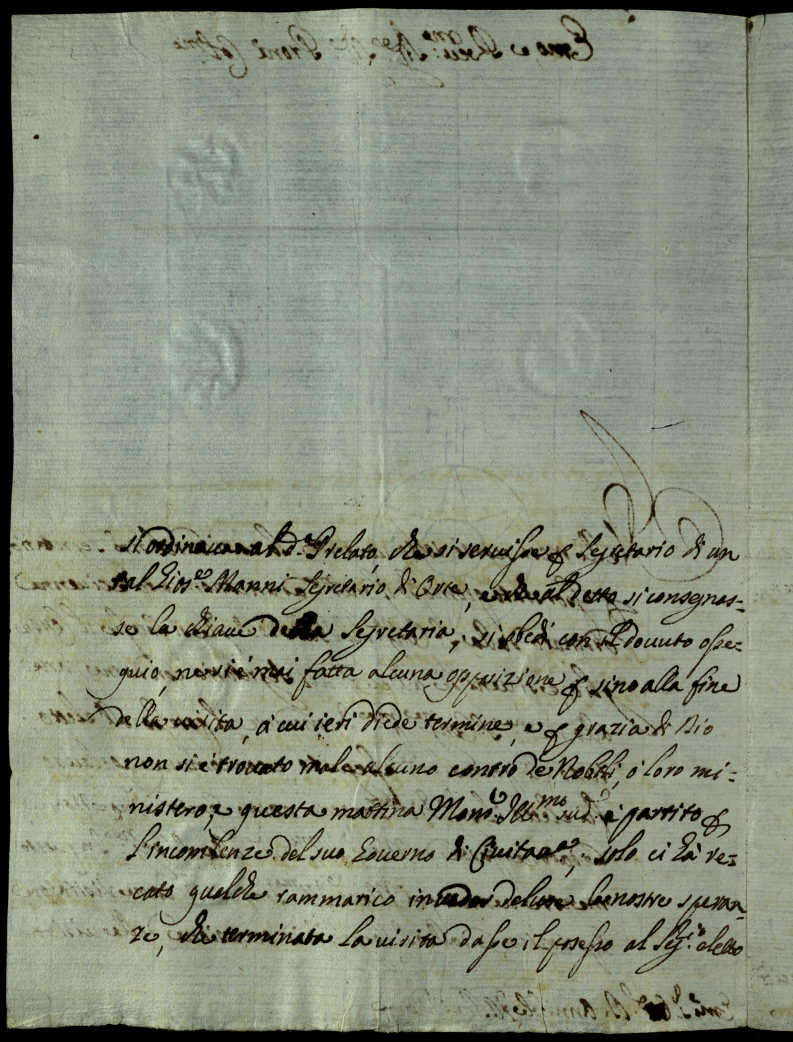 si ordinava al d.º Prelato, che si servisse p Segretario di un
tal Gios.e Manni Segretario di Orte, e che al detto si consegnas=
se la chiave della Segretaria, si obedì con il dovuto osse=
quio, ne si è mai fatta alcuna opposizione p sino alla fine
della visita, à cui ieri diede termine, e p grazia di Dio
non si è trovato male alcuno contro de Nobili, ò loro mi=
nistero, e questa mattina Mons.r Ill.mo sud.º è partito p
l'incombenze del suo Governo di Civita, solo ci hà re=
cato qualche rammarico in veder deluse le nostre speran=
ze, che terminata la visita dasse il possesso al Seg.rio eletto